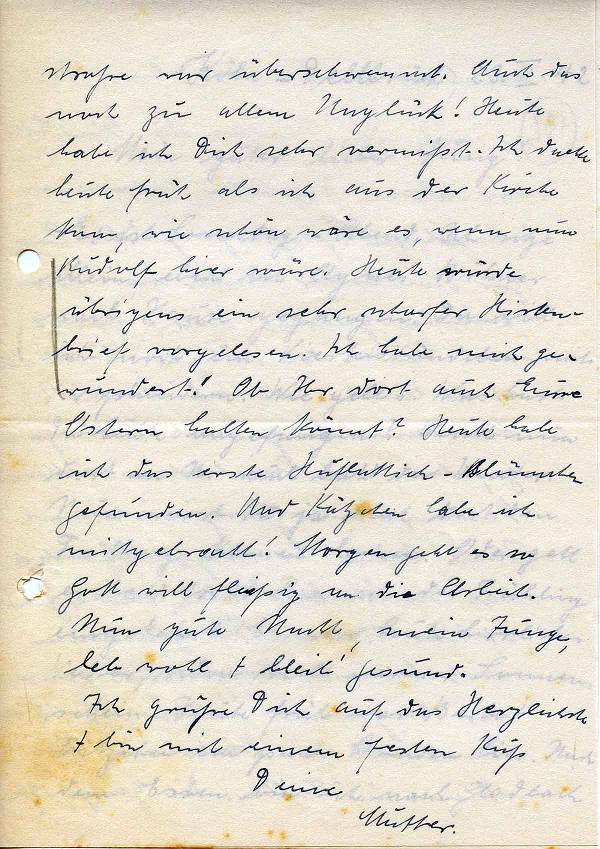 strasse war überschwemmt. Auch das
noch zu allem Unglück! Heute
habe ich Dich sehr vermißt. Ich dachte
heute früh als ich aus der Kirche
kam, wie schön wäre es, wenn nun
Rudolf hier wäre. Heute wurde
übrigens ein sehr scharfer Hirten-
brief vorgelesen. Ich habe mich ge-
wundert! Ob Ihr dort auch Eure
Ostern halten könnt? Heute habe
ich das erste Huflattich-Blümchen
gefunden. Und Kätzchen habe ich
mitgebracht! Morgen geht es so
Gott will fleißig an die Arbeit.
Nun gute Nacht, mein Junge,
leb wohl + bleib' gesund.
Ich grüße Dich auf das Herzlichste
+ bin mit einem festen Kuß
Deine
Mutter.